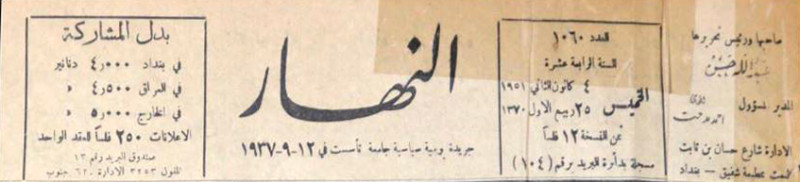 صاحبها ورئيس تحريرها
عبدالله حسن
المدير المسؤول
الادارة شارع حسان بن ثابت
عمارت مطبعة شفيق - بغداد
العدد ١٠٦٠
السنة الرابعة عشرة
الخميس
٤ كانون الثاني ١٩٥١
٢٥ ربيع الاول ١٣٧٠
ثمن النسخة ١٢ فلساً
مسجلة بدائرة البريد برقم (١٠٤)
النهار
جريدة يومية سياسية جامعة تأسست في ١٢-٩-١٩٣٧
بدل المشاركة
في بغداد ٤٫٠٠٠ دنانير
في العراق ٤٫٥٠٠ »
في الخارج ٥٫٠٠٠ »
الاعلانات ٢٥٠ فلساً للعقد الواحد
صندوق البريد رقم ١٣
التلفون ٣٢٥٣ الادارة ٦٢ جنوب